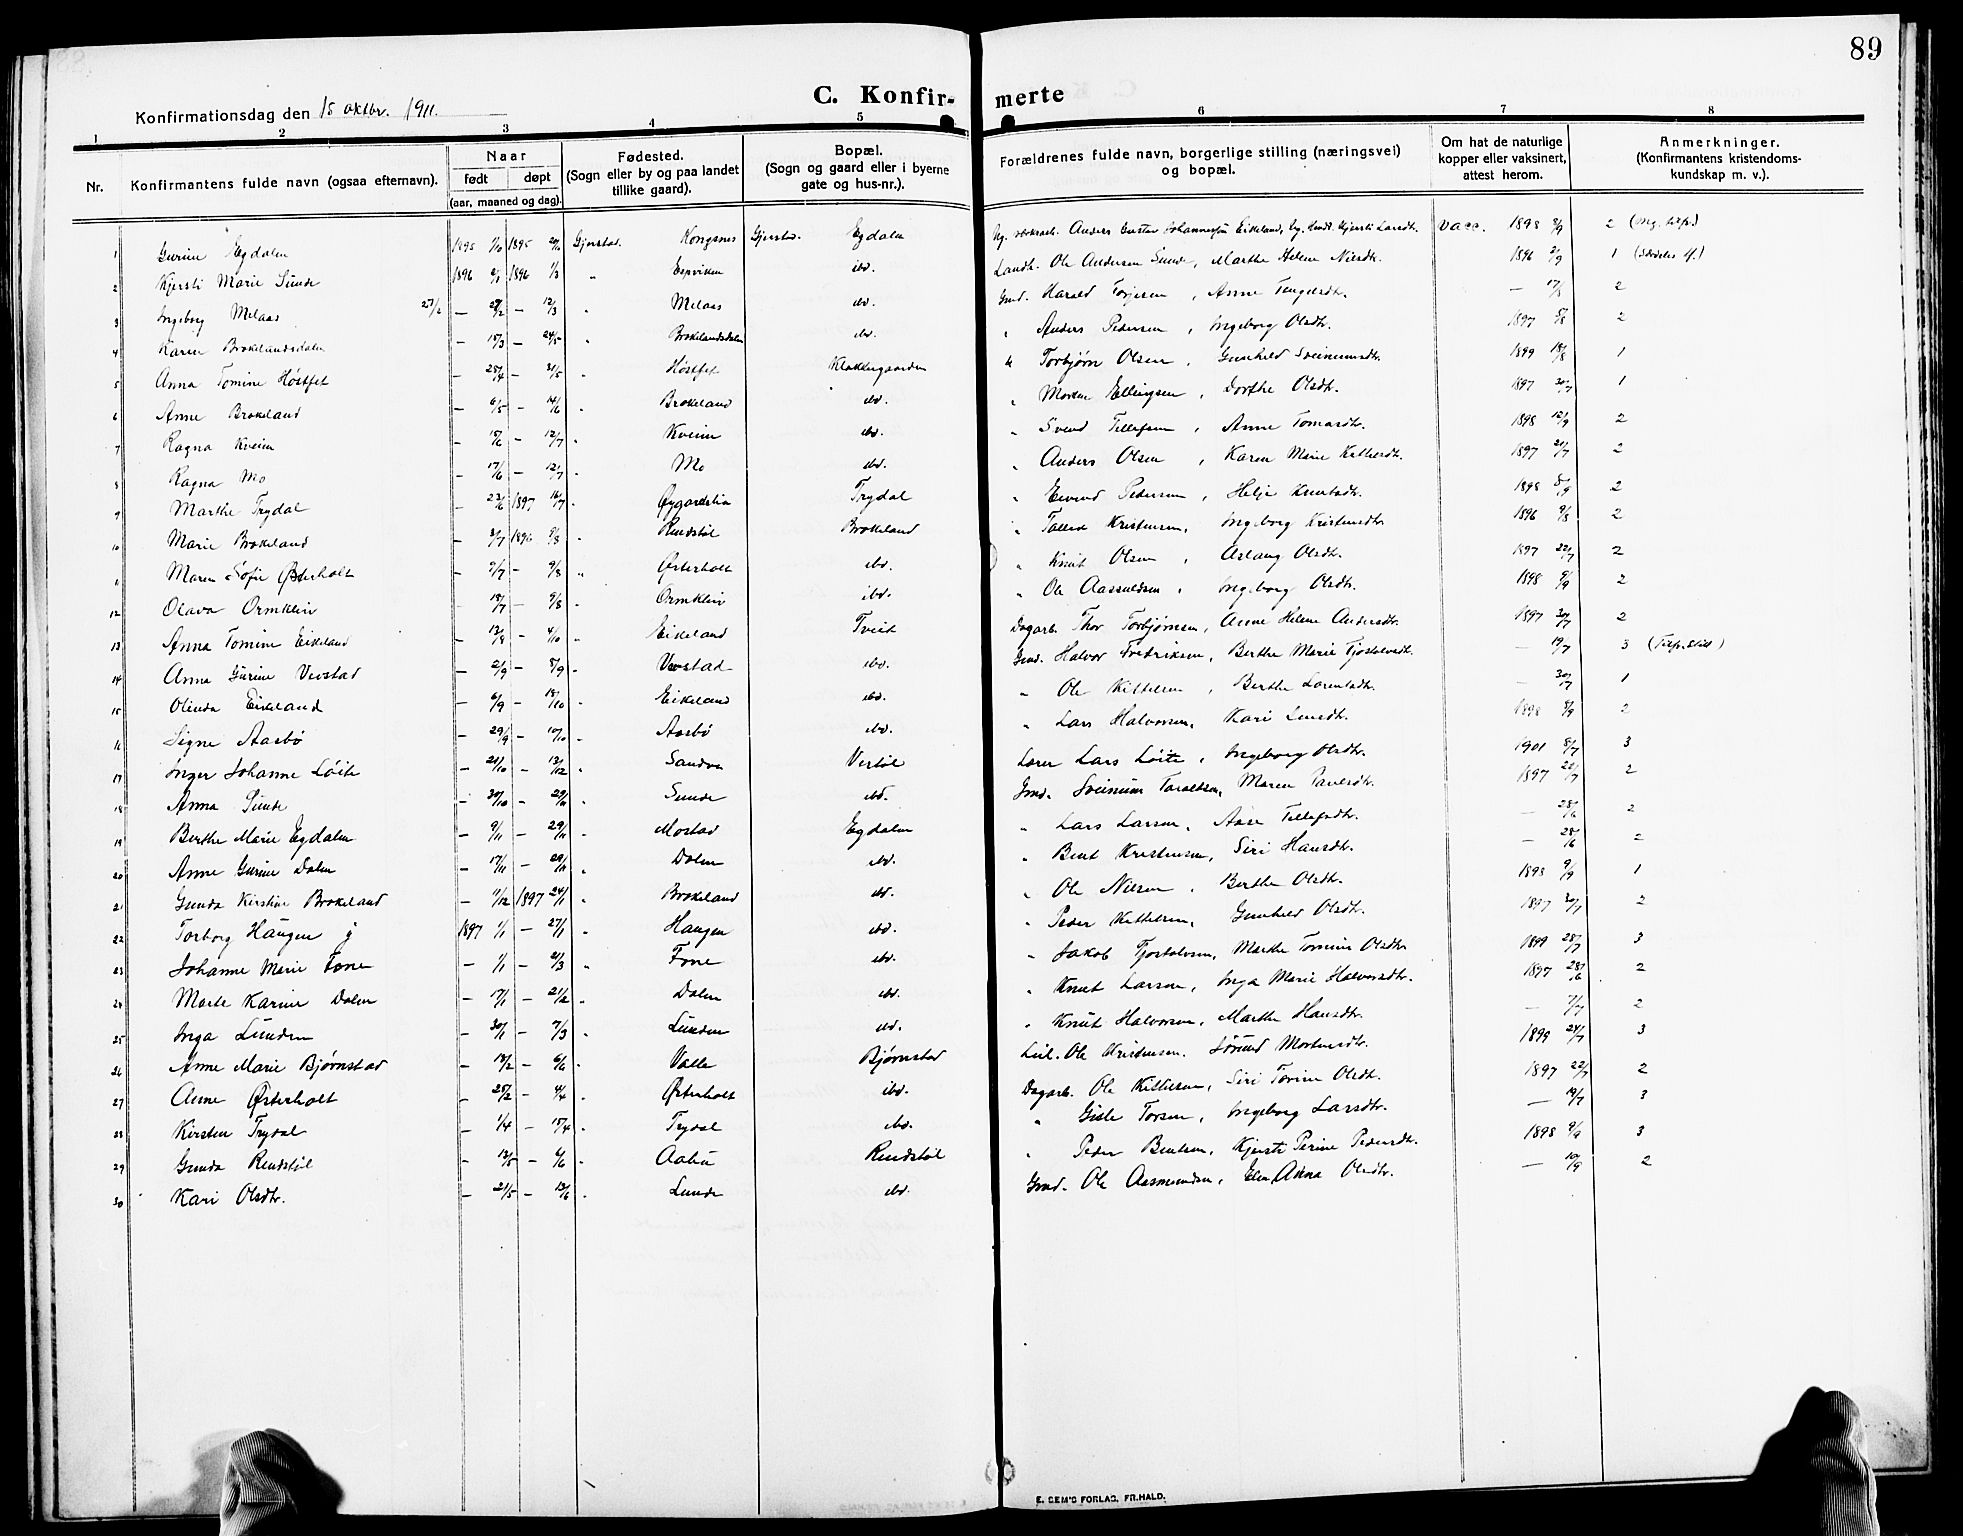 89
C. Konfir- merte
Konfirmationsdag den 15 oktbr. 1911.
1 2 3 4 5 6 7 8
Nr. Konfirmantens fulde navn (ogsaa efternavn). Naar født døpt (aar, maaned og dag). Fødested. (Sogn eller by og paa landet tillike gaard). Bopæl. (Sogn og gaard eller i byerne gate og hus-nr.). Forældrenes fulde navn, borgerlige stilling (næringsvei) og bopæl. Om hat de naturlige kopper eller vaksinert, attest herom. Anmerkninger. (Konfirmantens kristendoms- kundskap m. v.).
1 Gurine Egdalen 1895 1895 Gjerstad. Kongsnes Gjerstad. Egdalen Anders Gustav Johannessen Eikeland, Kjersti Larsdt. Vacc. 1898 8/9 2
2 Kjersti Marie Sunde 1896 1896 1/3 " Espviken ibd. Landh. Ole Andersen Sunde, Marthe Helene Nilsdt. 1896 2/9 1
3 Ingeborg Melaas 27/2 — 27/2 — 12/3 " Melaas ibd. Gmd. Harald Torjesen, Anne Tengelsdt. — 17/8 2
4 Karen Brokelandsdalen — 15/3 — 24/5 Brokelandsdalen ibd. " Anders Pedersen, Ingeborg Olsdt. 1897 5/8 2
5 Anna Tomine Høstfet — 25/4 — 31/5 " Høstfet Klokkergaarden " Torbjørn Olsen, Gunhild Sveinumsdt. 1899 18/8 1
6 Anne Brokeland — 6/5 — 14/6 " Brokeland ibd. " Morten Ellingsen, Dorthe Olsdt. 1897 30/7 1
7 Ragna Kveim — 15/6 — 12/7 " Kveim ibd. " Svend Tellefsen, Anne Tomasdt. 1898 12/9 2
8 Ragna Mo — 17/6 — 12/7 " Mo ibd. " Anders Olsen, Karen Marie 1897 21/7 2
9 Marthe Trydal — 22/6 1897 16/7 " Øygardslia Trydal " Eivind Pedersen, Helje Knutsdt. 1898 8/9 2
10 Marie Brokeland — 3/7 1896 9/8 " Rendstøl Brokeland " Tallak Kristensen, Ingeborg Kristensdt. 1896 9/8 2
11 Maren Sofie Østerholt — 7/7 — 9/8 " Østerholt ibd. " Knut Olsen, Aslaug Olsdt. 1897 22/7 2
12 Olava Ormkleiv — 18/7 — 9/8 Ormkleiv ibd. " Ole Aasmundsen, Ingeborg Olsdt. 1898 9/9 2
13 Anna Tomine Eikeland — 12/8 — 4/10 " Eikeland Tveit Dagarb. Thor Torbjørnsen, Anne Helene Andersdt. 1897 30/7 2
14 Anna Gurine Vevstad — 2/9 — 8/9 " Vevstad ibd. Gmd. Halvor Fredriksen, Berthe Marie Tjostolvsdt. — 19/7 3
15 Olinda Eikeland — 6/9 — 18/10 " Eikeland ibd. " Ole Kittelsen, Berthe Larentsdt. — 30/7 1
16 Signe Aasbø — 29/9 — 10/10 " Aasbø ibd. " Lars Halvorsen, Kari Jensdt. 1898 8/9 2
17 Inger Johanne Løite — 21/10 — 13/12 " Sandva Vestøl Lærer Lars Løite, Ingeborg Olsdt. 1901 8/7 3
18 Anna Sunde — 30/10 — 29/11 " Sunde ibd. Gmd. Sveinum Taraldsen, Maren 1897 22/7 2
19 Berthe Marie Egdalen — 9/11 — 29/11 " Mostad Egdalen " Lars Larsen, Aase Tellefsdt. — 28/6 2
20 Anne Gurine Dalen — 17/11 — 29/11 " Dalen ibd. " Bent Kristensen, Siri Hansdt. — 28/6 2
21 Gunda Kirstine Brokeland — 1/12 1897 24/1 " Brokeland ibd. " Ole Nilsen, Berthe Olsdt. 1898 9/9 1
22 Torborg Haugen 1897 1/1 — 27/1 " Haugen ibd. " Peder Kittelsen, Gunhild Olsdt. 1897 30/7 2
23 Johanne Marie Fone — 1/1 — 2/3 " Fone ibd. " Jakob Tjostolvsen, Marthe Tomine Olsdt. 1899 28/7 3
24 Marte Karine Dalen — 17/1 — 21/2 " Dalen ibd. " Knut Larsen, Inga Marie Halvorsdt. 1897 28/6 2
25 Inga Lunden — 30/1 — 7/3 " Lunden ibd. " Knut Halvorsen, Marthe Hansdt. — 7/7 2
26 Anne Marie Bjørnstad — 13/2 — 6/6 " Valle Bjørnstad Leil. Ole Kristensen, Mortensdt. 1899 24/7 3
27 Anne Østerholt — 25/2 — 4/4 " Østerholt ibd. Dagarb. Ole Kittelsen, Siri Torine Olsdt. 1897 22/7 2
28 Kirsten Trydal — 1/4 — 15/4 " Trydal ibd. " Gisle Torsen, Ingeborg Larsdt. — 19/7 3
29 Gunda Rendstøl — 13/5 — 6/6 " Rendstøl " Peder Bentsen, Kjersti Perine Pedersdt. 1898 9/9 3
30 Kari Olsdt. — 21/5 — 13/6 " Lunde ibd. Gmd. Ole Aasmundsen, Elen Anna Olsdt. — 10/9 2
E. SEM'S FORLAG, FR.HALD.